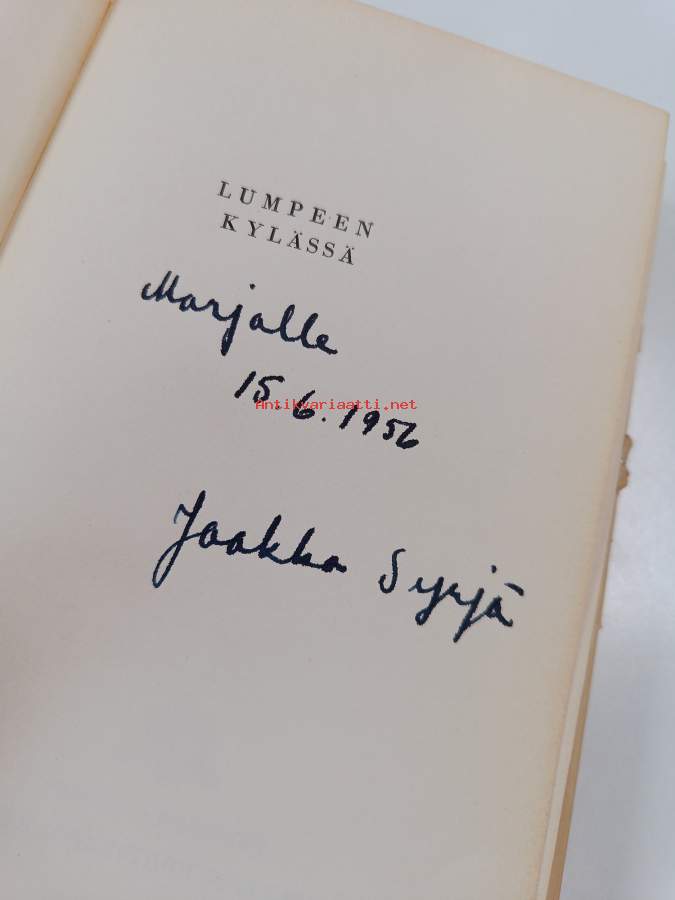 LUMPEEN
KYLÄSSÄ
Marjalle
15.6.1956
Antikvariaatti.net
Jaakko Syrjä